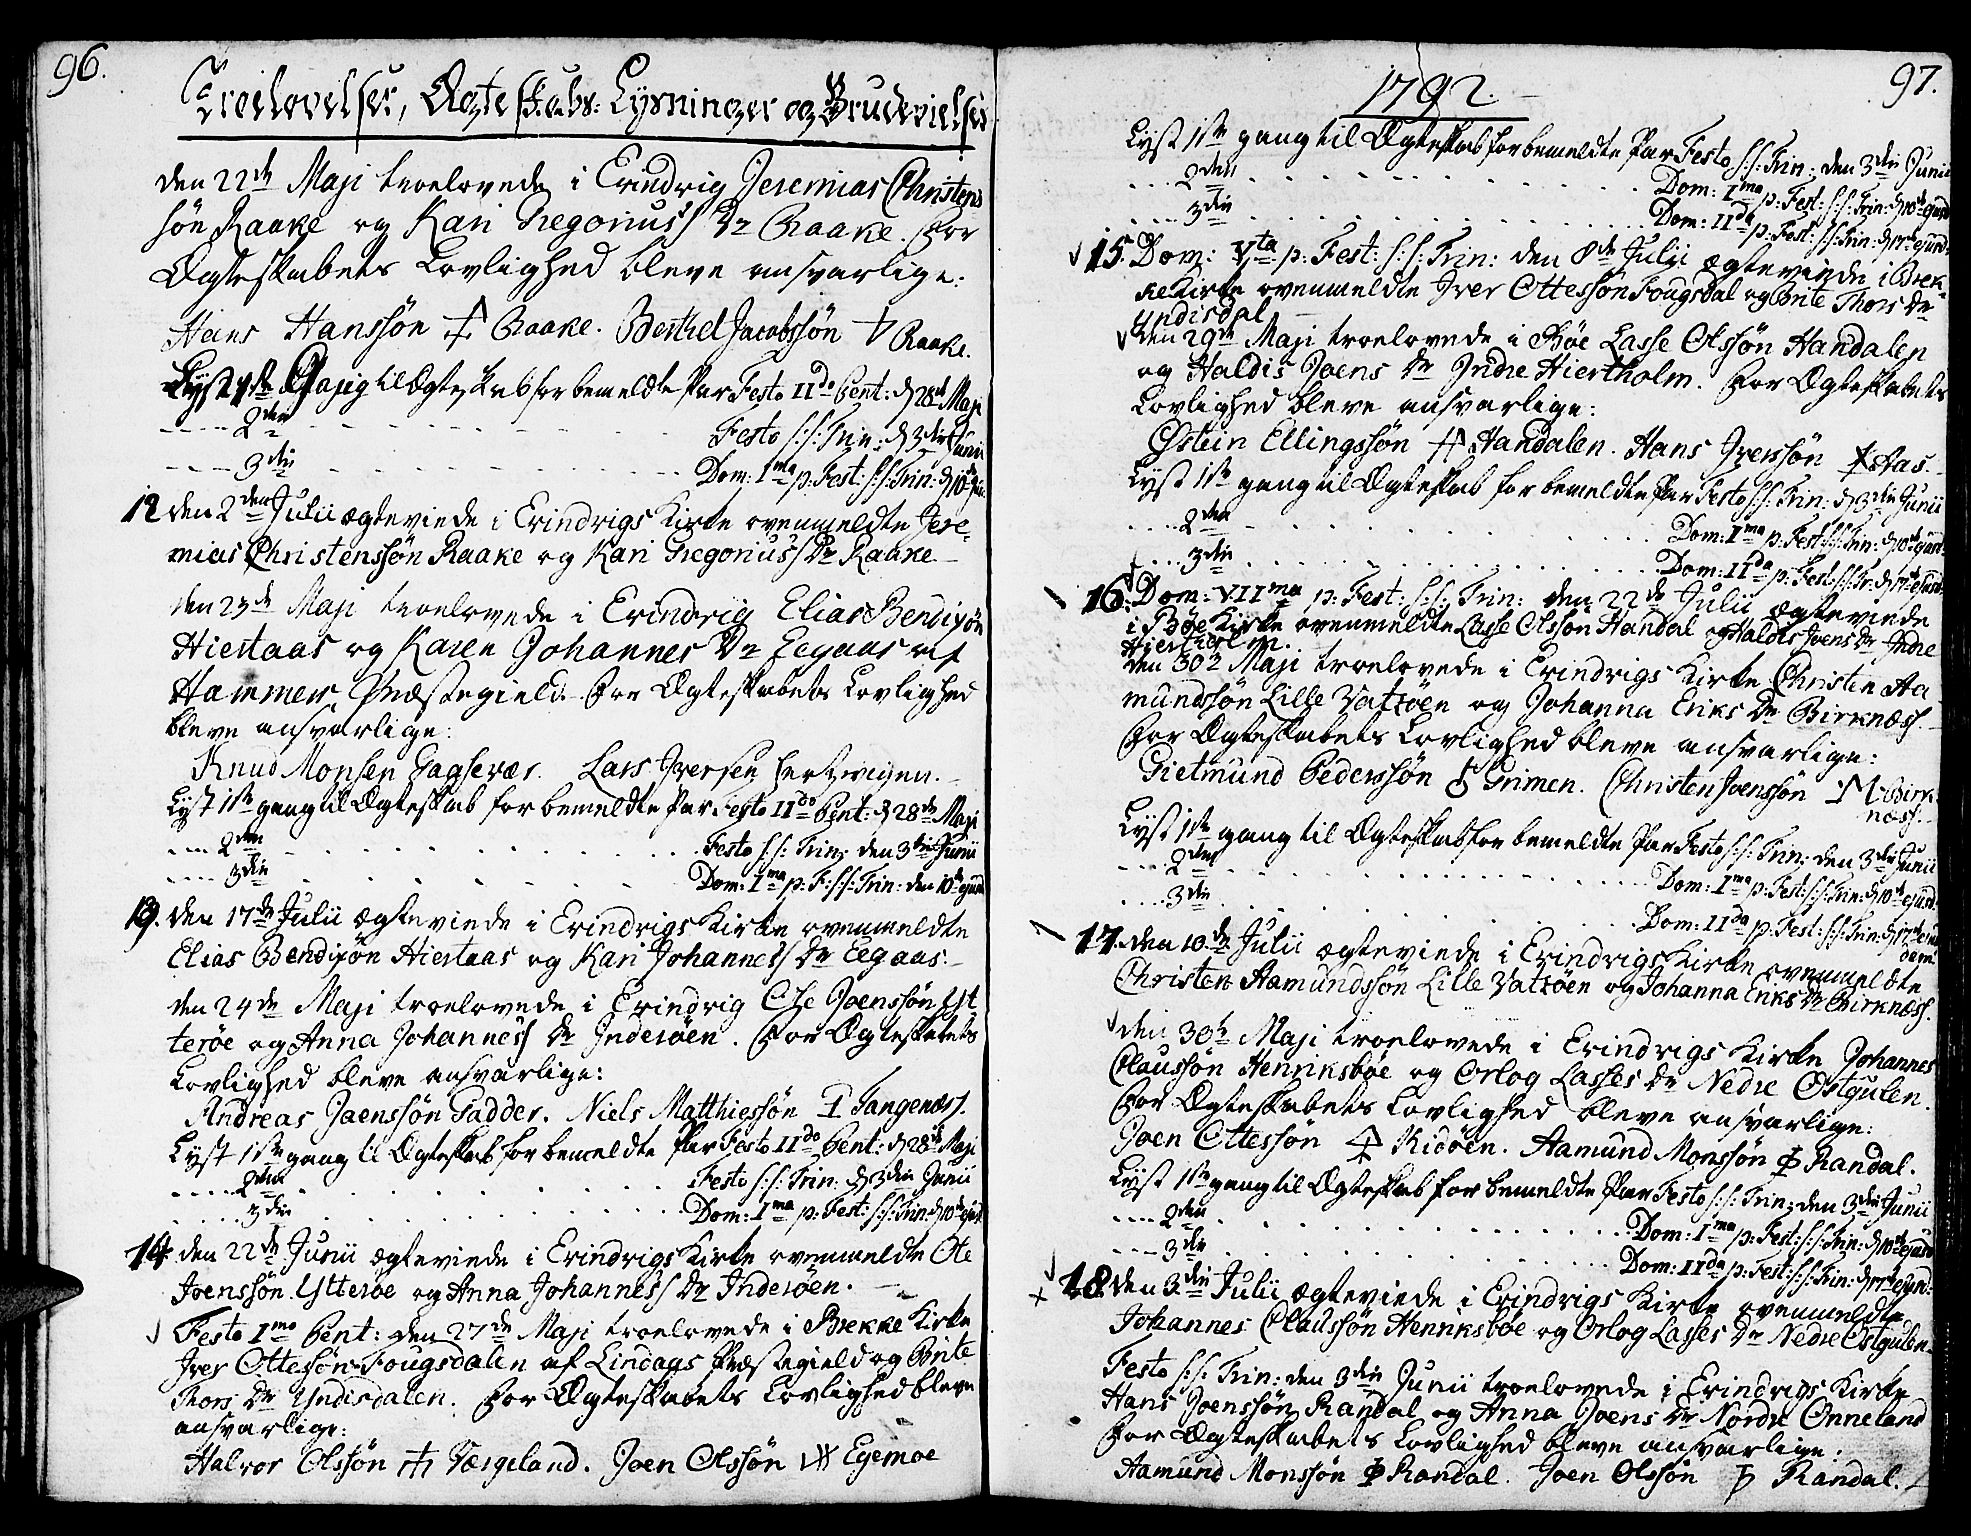 96.
Troelovelser, Ægteskabs: Lysninger og Brudevielser
den 22de Maji troelovede i Erindrig Jeremias Christens
søn Raake og Kari Gregorius's Dr Raake. For
Ægteskabets Lovlighed bleve ansvarlige:
Hans Hanssøn Raake. Berthel Jacobssøn Raake.
Lyst 1ste Gang til Ægteskab for bemeldte Par Festo IIdo Pent: d 28de Maji
2den Festo S:S: Trin: d 3die Junii
3die Dom: Ima p: Fest: S:S: Trin: d 10de
12 den 2den Julii ægteviede i Erindrigs Kirke ovenmeldte Jere-
mias Christenssøn Raake og Kari Gregorius's Dr Raake.
den 23de Maji troelovede i Erindrig Elias Bendixøn
Hiertaas og Karen Johannes Dr Eegaas af
Hammers Præstegield. For Ægteskabets Lovlighed
bleve ansvarlige:
Knud Monsen Gagsevær. Lars Iversen Hertzvigen.
Lyst 1ste gang til Ægteskab for bemeldte Par Festo IIdo Pent: d 28de Maji
2den Festo S:S: Trin: den 3die Junii
3die Dom: Ima p: F: S:S: Trin: den 10de ejusd
13. den 17de Julii ægteviede i Erindrigs Kirke ovenmeldte
Elias Bendixøn Hiertaas og Kari Johannes's Dr Eegaas.
den 24de Maji troelovede i Erindrig Ole Joenssøn Yt
terøe og Anna Johannes's Dr Inderøen. For Ægteskabets
Lovlighed bleve ansvarlige:
Andreas Joenssøn Gadder. Niels Matthiessøn Tangenæss.
Lyst 1ste gang til Ægteskab for bemeldte Par Festo IIdo Pent: d 28de Maji
2den Festo S:S: Trin: d 3die Junii
3die Dom: Ima p: Fest: S:S: Trin: d 10de ejusd
14 den 22de Junii ægteviede i Erindrigs Kirke ovenmeldte Ole
Joenssøn Ytterøe og Anna Johannes's Dr Inderøen.
Festo Imo Pent: den 27de Maji troelovede i Brekke Kirke
Iver Ottessøn Fougsdalen af Lindaas Præstegield og Brite
Thors Dr Yndisdalen. For Ægteskabets Lovlighed bleve
ansvarlige:
Halvor Olssøn Værgeland. Joen Olssøn Egemoe
1792.
97.
Lyst 1ste gang til Ægteskab for bemeldte Par Festo S:S: Trin: den 3die Junii
2den Dom: Ima p: Fest: S:S: Trin: d 10de ejusd
3die Dom: IIda p: Fest: S:S: Trin: d 17de ejusd:
15. Dom: Vta p: Fest: S:S: Trin: den 8de Julii ægteviede i Brek-
ke Kirke ovenmeldte Iver Ottessøn Fougsdal og Brite Thors Dr
Yndisdal
den 29de Maji troelovede i Bøe Lasse Olssøn Handalen
og Haldis Joens Dr Indre Hiertholm. For Ægteskabets
Lovlighed bleve ansvarlige:
Østein Ellingssøn Handalen. Hans Iverssøn Aas.
Lyst 1ste gang til Ægteskab for bemeldte Par Festo S:S: Trin: d 3die Junii
2den Dom: Ima p: Fest: S:S: Trin: d 10de ejusd:
3die Dom: IIda p: Fest: S:S: Tr: d 17de ejusd:
16. Dom: VIIma p: Fest: S:S: Trin: den 22de Julii ægteviede
i Bøe Kirke ovenmeldte Lasse Olssøn Handal og Haldis Joens Dr Indre
Hiertholm.
den 30te Maji troelovede i Erindrigs Kirke Christen Aa
mundssøn Lille Vatzøen og Johanna Eriks Dr Birknæss.
For Ægteskabets Lovlighed bleve ansvarlige:
Gietmund Pederssøn Grimen. Christen Joenssøn Birk-
næss.
Lyst 1ste gang til Ægteskab for bemeldte Par Festo S:S: Trin: den 3die Junii
2den Dom: Ima p: Fest: S:S: Trin: d 10de ejusd:
3die Dom: IIda p: Fest: S:S: Trin: d 17de ejus
dem.
17. den 10de Julii ægteviede i Erindrigs Kirke ovenmeldte
Christen Aamundssøn Lille Vatzøen og Johanna Eriks Dr Birknæss.
den 30te Maji troelovede i Erindrigs Kirke Johannes
Claussøn Henriksbøe og Orlog Lasses Dr Nedre Østgulen.
For Ægteskabets Lovlighed bleve ansvarlige:
Joen Ottessøn Risøen. Aamund Monssøn Randal.
Lyst 1ste gang til Ægteskab for bemeldte Par Festo S:S: Trin: den 3die Junii
2den Dom: Ima p: Fest: S:S: Trin: d 10de ejusd
3die Dom: IIda p: Fest: S:S: Trin: d 17de ejusd:
18 den 3die Julii ægteviede i Erindrigs Kirke ovenmeldte
Johannes Claussøn Henriksbøe og Orlog Lasses Dr Nedre Østgulen.
Festo S:S: Trin: den 3die Junii troelovede i Erindrigs Kirke
Hans Joenssøn Randal og Anna Joens Dr Nordre Onneland
For Ægteskabets Lovlighed bleve ansvarlige:
Aamund Monssøn Randal. Joen Olssøn Randal.